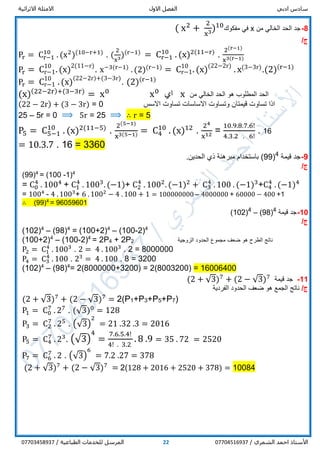 سادس ادبي الفصل الاول الاسئلة الاثرائية
8- جد الحد الخالي من x في مفكوك (x² + 2/x³)¹⁰
ج/
Pr = C¹⁰ᵣ₋₁ . (x²)^(10−r+1) . (2/x³)^(r−1) = C¹⁰ᵣ₋₁ . (x)^2(11−r) . 2^(r−1)/x^3(r−1)
Pr = C¹⁰ᵣ₋₁ . (x)^2(11−r) . x^−3(r−1) . (2)^(r−1) = C¹⁰ᵣ₋₁ . (x)^(22−2r) . x^(3−3r) . (2)^(r−1)
Pr = C¹⁰ᵣ₋₁ . (x)^(22−2r)+(3−3r) . (2)^(r−1)
(x)^(22−2r)+(3−3r) = x⁰ الحد المطلوب هو الحد الخالي من x اي x⁰
(22 − 2r) + (3 − 3r) = 0 اذا تساوت قيمتان وتساوت الاساسات تساوت الاسس
25 – 5r = 0 ⟹ 5r = 25 ⟹ ∴ r = 5
P₅ = C¹⁰₅₋₁ . (x)^2(11−5) . 2^(5−1)/x^3(5−1) = C¹⁰₄ . (x)¹² . 2⁴/x¹² = 10.9.8.7.6!/4.3.2 . 6! . 16
= 10.3.7 . 16 = 3360
9- جد قيمة (99)⁴ باستخدام مبرهنة ذي الحدين.
ج/
(99)⁴ = (100 -1)⁴
= C⁴₀ . 100⁴ + C⁴₁ . 100³ . (−1)+ C⁴₂ . 100² . (−1)² + C⁴₃ . 100 . (−1)³+C⁴₄ . (−1)⁴
= 100⁴ - 4 . 100³+ 6 . 100² − 4 . 100 + 1 = 100000000 − 4000000 + 60000 − 400 +1
∴ (99)⁴ = 96059601
10- جد قيمة (98)⁴ – (102)⁴
ج/
(102)⁴ – (98)⁴ = (100+2)⁴ – (100-2)⁴
(100+2)⁴ – (100-2)⁴ = 2P₄ + 2P₂ ناتج الطرح هو ضعف مجموع الحدود الزوجية
P₂ = C⁴₁ . 100³ . 2 = 4 . 100³ . 2 = 8000000
P₄ = C⁴₃ . 100 . 2³ = 4 . 100 . 8 = 3200
(102)⁴ – (98)⁴= 2(8000000+3200) = 2(8003200) = 16006400
11- جد قيمة (2 + √3)⁷ + (2 − √3)⁷
ج/ ناتج الجمع هو ضعف الحدود الفردية
(2 + √3)⁷ + (2 − √3)⁷ = 2(P₁+P₃+P₅+P₇)
P₁ = C⁷₀ . 2⁷ . (√3)⁰ = 128
P₃ = C⁷₂ . 2⁵ . (√3)² = 21 .32 .3 = 2016
P₅ = C⁷₄ . 2³. (√3)⁴ = 7.6.5.4!/4! . 3.2 . 8 .9 = 35 . 72 = 2520
P₇ = C⁷₆ . 2 . (√3)⁶ = 7.2 .27 = 378
(2 + √3)⁷ + (2 − √3)⁷ = 2(128 + 2016 + 2520 + 378) = 10084
الأستاذ احمد الشمري / 07704516937 22 المرسل للخدمات الطباعية / 07703458937